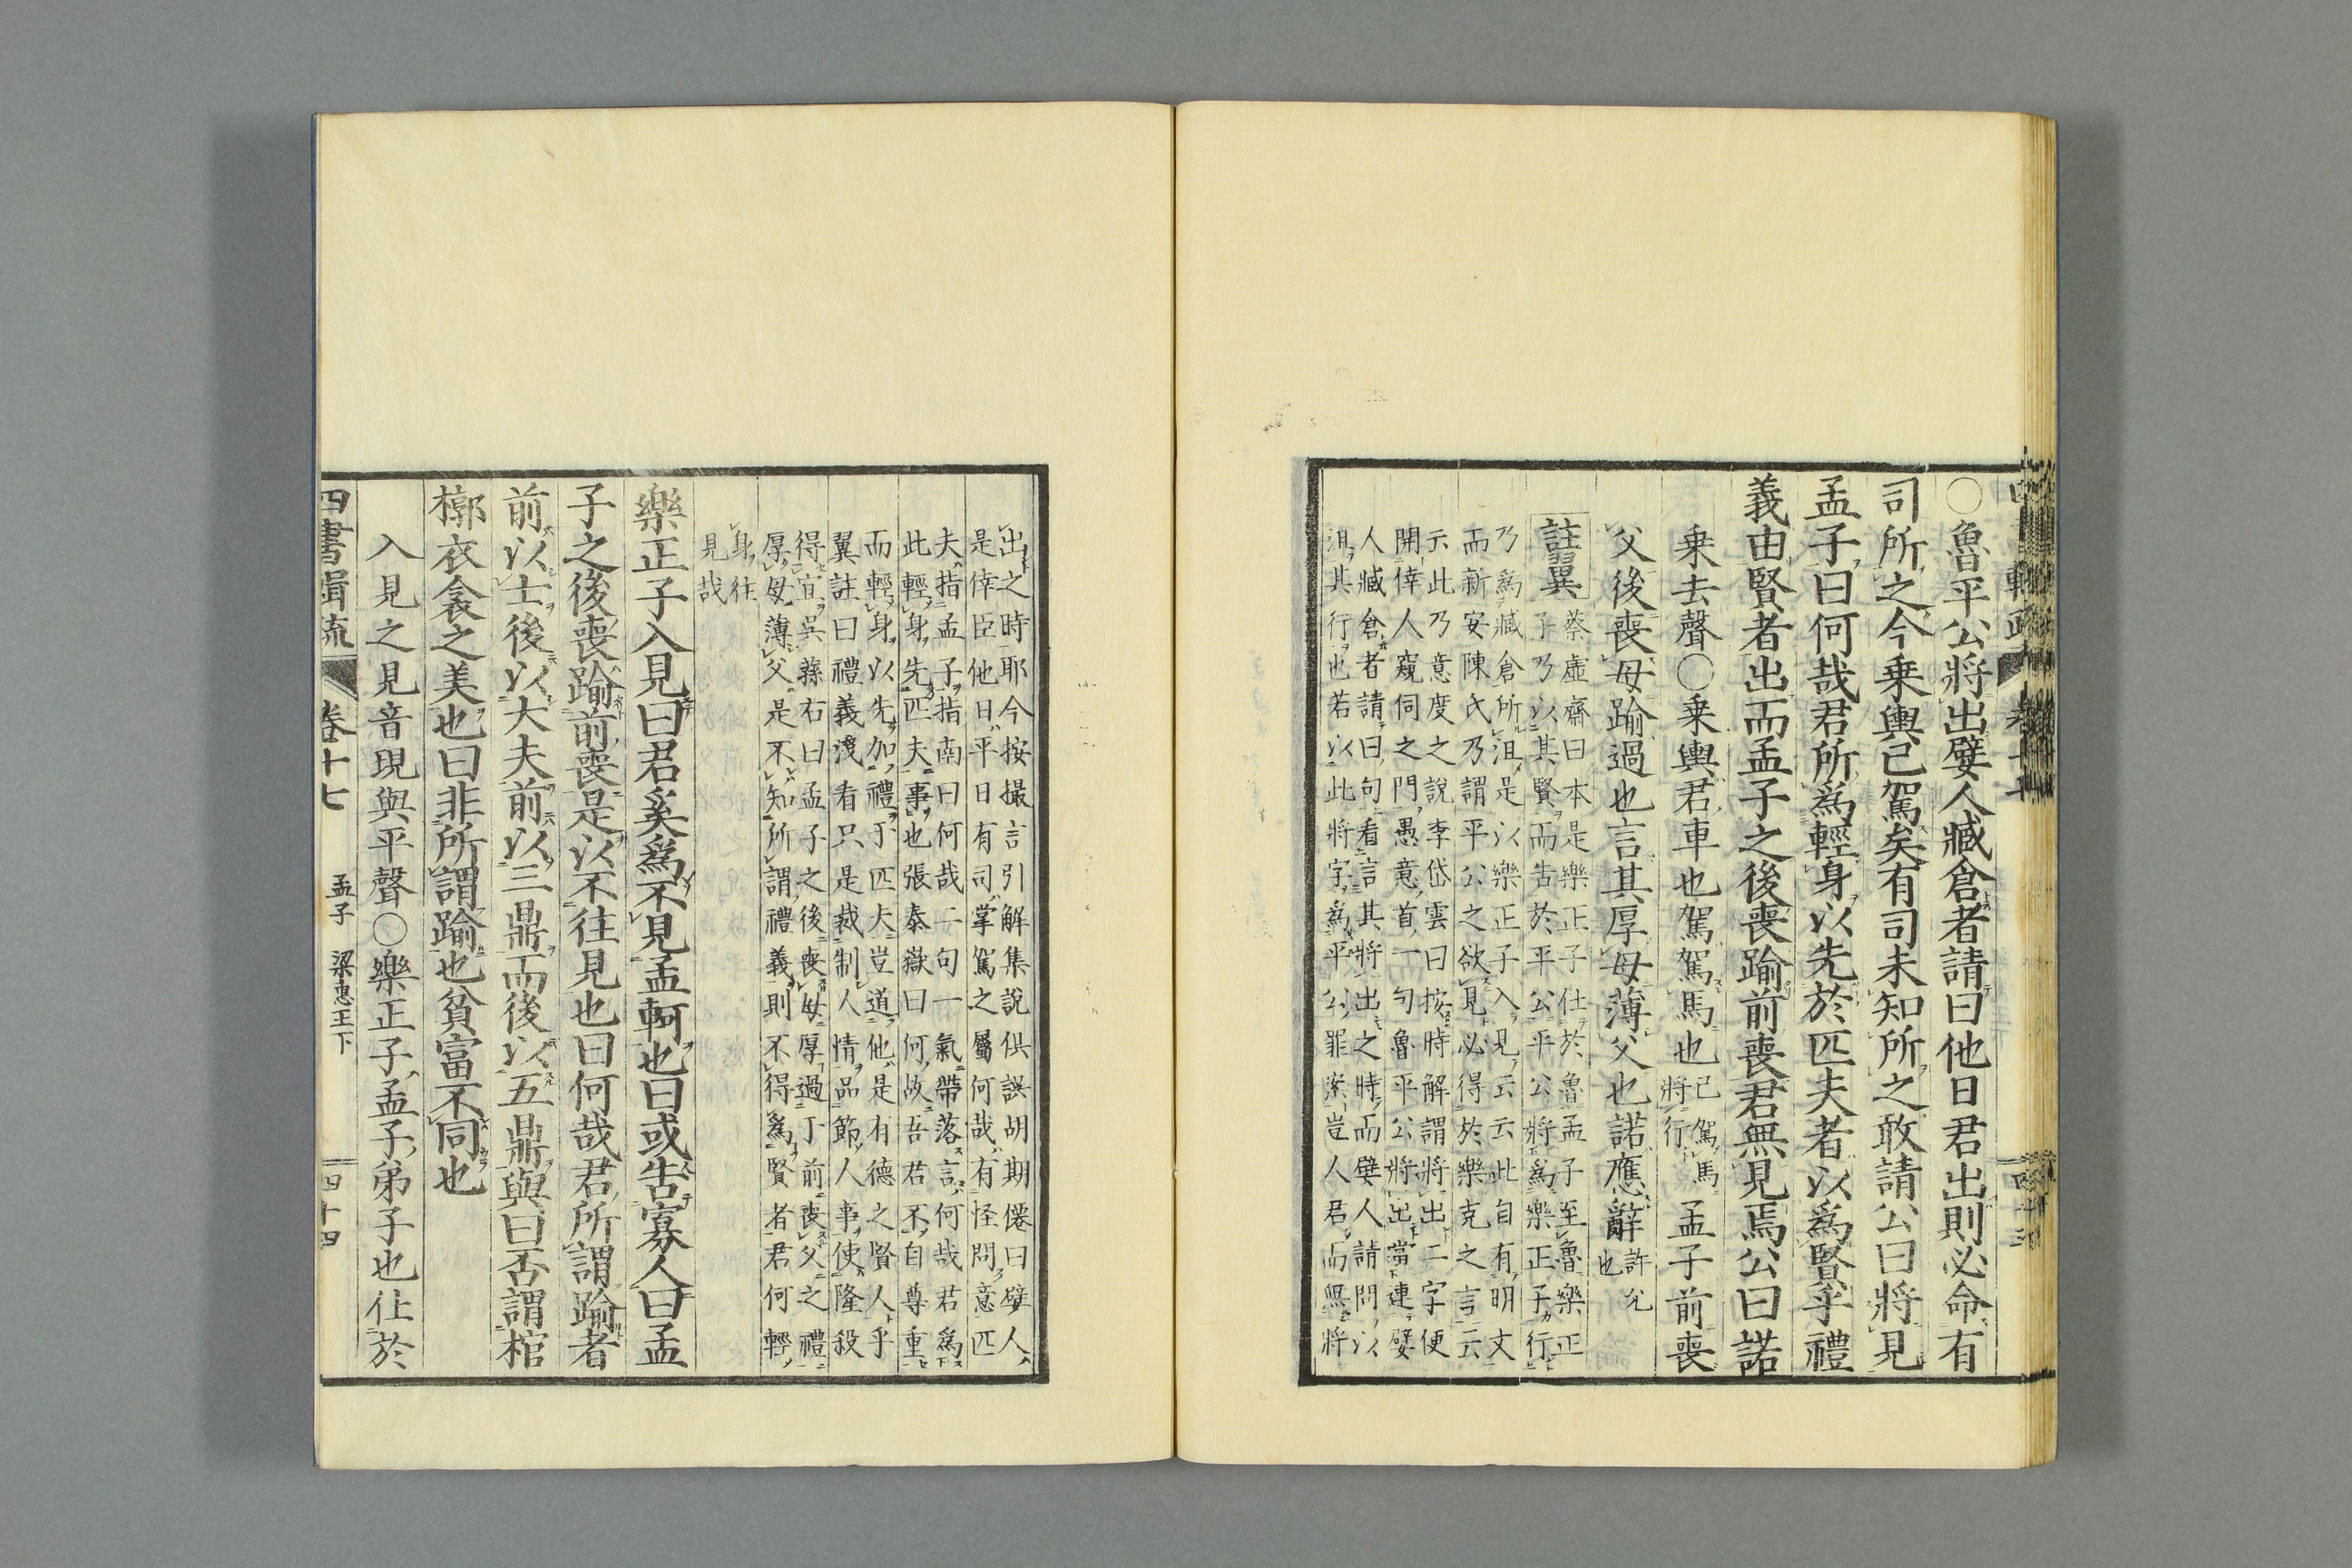 ○魯平公將出嬖人臧倉者請曰他日君出則必命有
司所之今乗輿已駕矣有司未知所之敢請公曰將見
孟子曰何哉君所爲輕身以先於匹夫者以爲賢乎禮
義由賢者出而孟子之後喪踰前喪君無見焉公曰諾
乗去聲○乗輿君車也駕駕馬也
已駕馬
將行
孟子前喪
父後喪母踰過也言其厚母薄父也諾應辭
許允
也
註翼
蔡虛齋曰本是樂正子仕於魯孟子至魯樂正
子乃以其賢而告於平公平公將爲樂正子行
乃爲臧倉所沮是以樂正子入見云云此自有明文
而新安陳氏乃謂平公之欲見必得於樂克之言云
示此乃意度之說李岱雲曰按時解謂將出二字便
開倖人窺伺之門愚意首一句魯平公將出當連嬖
人臧倉者請曰句看言其將出之時而嬖人請問以
沮其行也若以此將字爲平公罪案豈人君而無將
出之時耶今按撮言引解集說俱誤胡期僊曰嬖人
是倖臣他日平日有司掌駕之屬何哉有怪問意匹
夫指孟子指南曰何哉二句一氣帶落言何哉君爲
此輕身先匹夫事也張泰嶽曰何故吾君不自尊重
而輕身以先加禮于匹夫豈道他是有德之賢人乎
翼註曰禮義淺看只是裁制人情品節人事使隆殺
得宜吳蓀右曰孟子之後喪母厚過于前喪父之禮
厚母薄父是不知所謂禮義則不得爲賢者君何輕
身往
見哉
樂正子入見曰君奚爲不見孟軻也曰或告寡人曰孟
子之後喪踰前喪是以不往見也曰何哉君所謂踰者
前以士後以大夫前以三鼎而後以五鼎與曰否謂棺
槨衣衾之美也曰非所謂踰也貧富不同也
入見之見音現與平聲○樂正子孟子弟子也仕於
四書緝疏 卷十七 孟子 梁惠王下 四十四